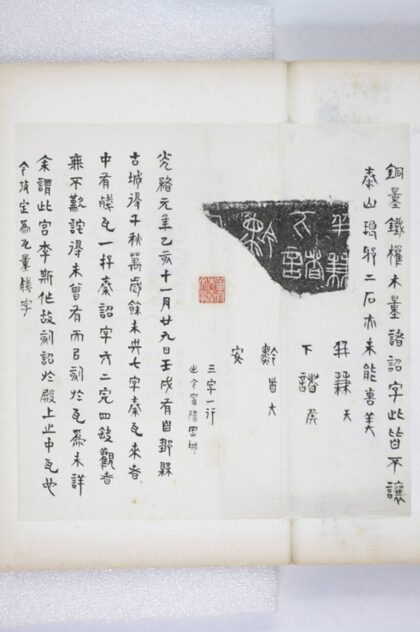 銅量鐵權木量諸詔字此皆不讓
泰山琅邪二石亦未能專美
幷兼
下諸
黔
幷兼天
下諸矦
黔首大
安
三字一行
光緒元年乙亥十一月廿九日壬戌有自鄠縣
古城得千秋萬歲餘未央七字秦瓦來者
中有殘瓦一存秦詔字六二完四缺觀者
無不歎詫得未曾有而刻於瓦為未詳
余謂此宮李斯作故刻詔於殿上止中瓦也
今定為瓦量殘字